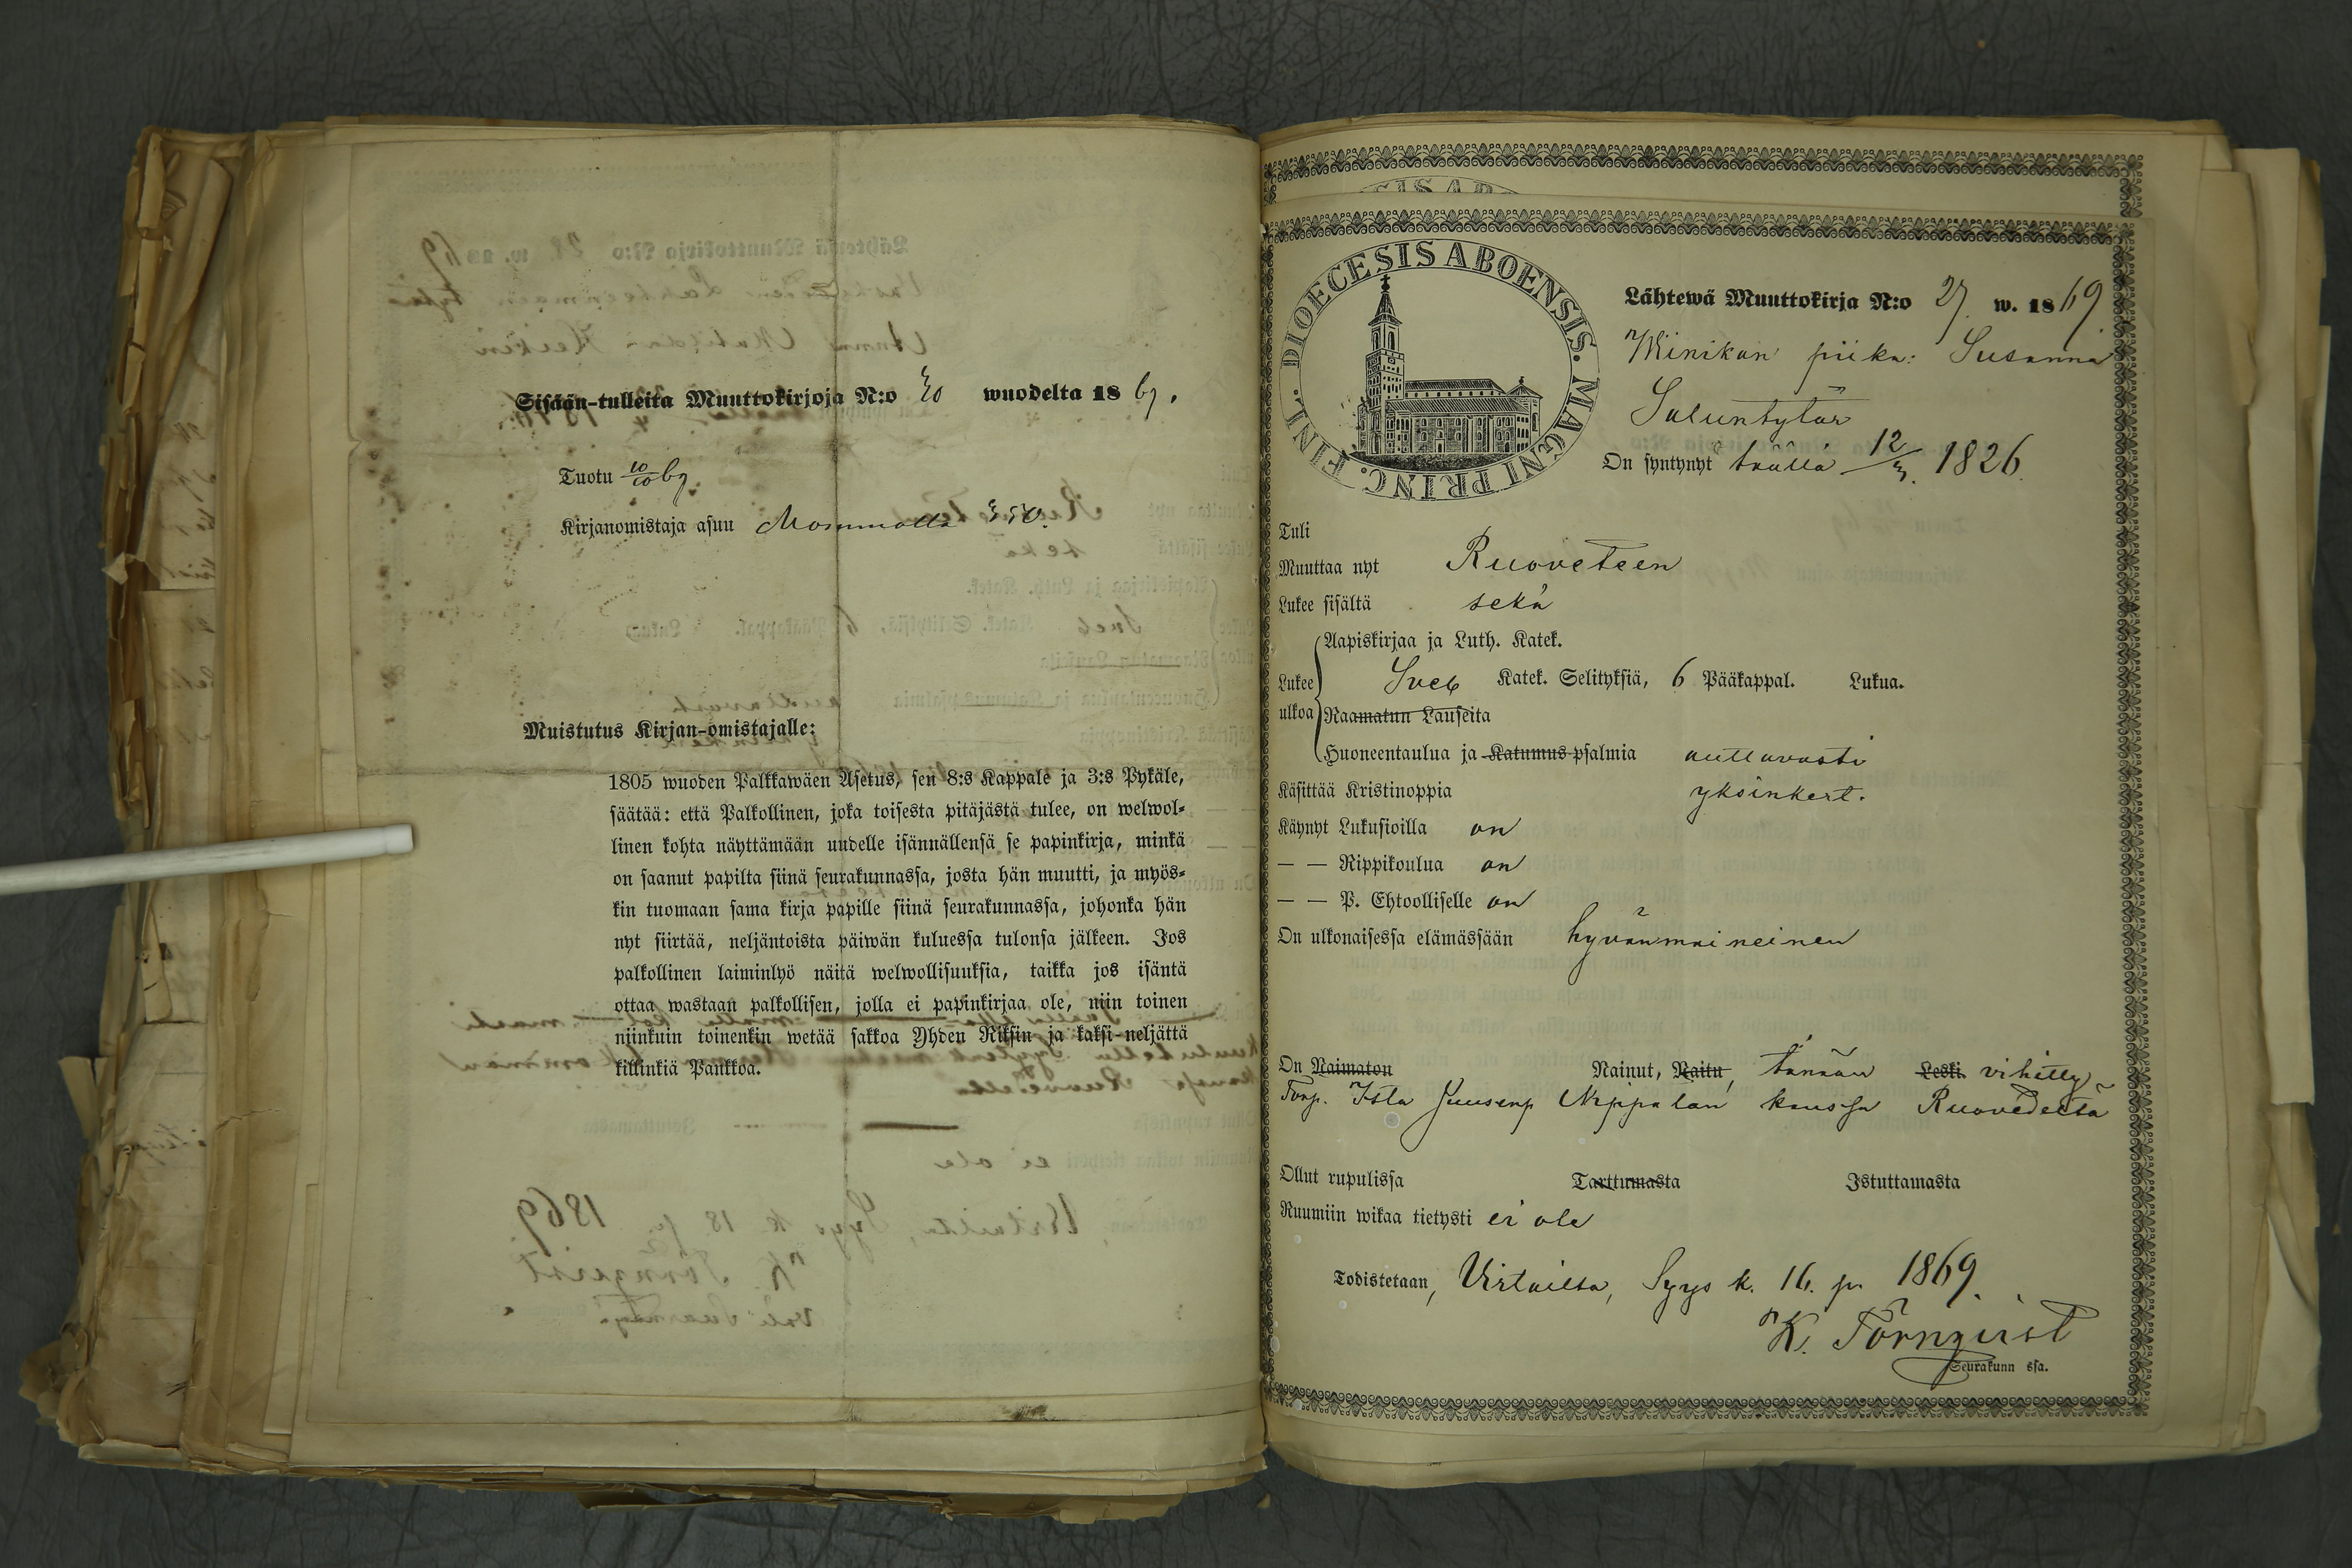 Sisään-tulleita Muuttokirjoja N:o 30 wuodelta 1869.
Tuotu 10/10 69
Kirjanomistaja asuu Mommolla 350.
Muistutus Kirjan-omistajalle:
1805 wuoden Palkkawäen Asetus, sen 8:s Kappale ja 3:s Pykäle,
säätää: että Palkollinen, joka toisesta pitäjästä tulee, on welwol-
linen kohta näyttämään uudelle isännällensä se papinkirja, minkä
on saanut papilta siinä seurakunnassa, josta hän muutti, ja myös-
kin tuomaan sama kirja papille siinä seurakunnassa, johonka hän
nyt siirtää, neljäntoista päiwän kuluessa tulonsa jälkeen. Jos
palkollinen laiminlyö näitä welwollisuuksia, taikka jos isäntä
ottaa wastaan palkollisen, jolla ei papinkirjaa ole, niin toinen
niinkuin toinenkin wetää sakkoa Yhden Riksin ja kaksi-neljättä
killinkiä Pankkoa.
DIOECESIS ABOENSIS. MAGNI PRINC. FINL.
Lähtewä Muuttokirja N:o 27. w. 1869.
Minikan piika: Susanna
Saluntytär
On syntynyt täällä 12/3. 1826.
Tuli
Muuttaa nyt Ruoveteen
Lukee sisältä sekä
Aapiskirjaa ja Luth. Katek.
Lukee ulkoa Sveb Katek. Selityksiä, 6 Pääkappal. Lukua.
Raamatun Lauseita
Huoneentaulua ja Katumus-psalmia auttavasti
Käsittää Kristinoppia yksinkert.
Käynyt Lukusioilla on
— — Rippikoulua on
— — P. Ehtoolliselle on
On ulkonaisessa elämässään hyvänmaineinen
On Naimaton Nainut, Naitu, tänään Leski. vihitty
Torp. Isla Juusenp Nippalan kanssa Ruovedeltä
Ollut rupulissa Tarttumasta Istuttamasta
Ruumiin wikaa tietysti ei ole
Todistetaan, Virtailta, Syys k. 16. p. 1869.
K. Törnqvist
Seurakunn ssa.